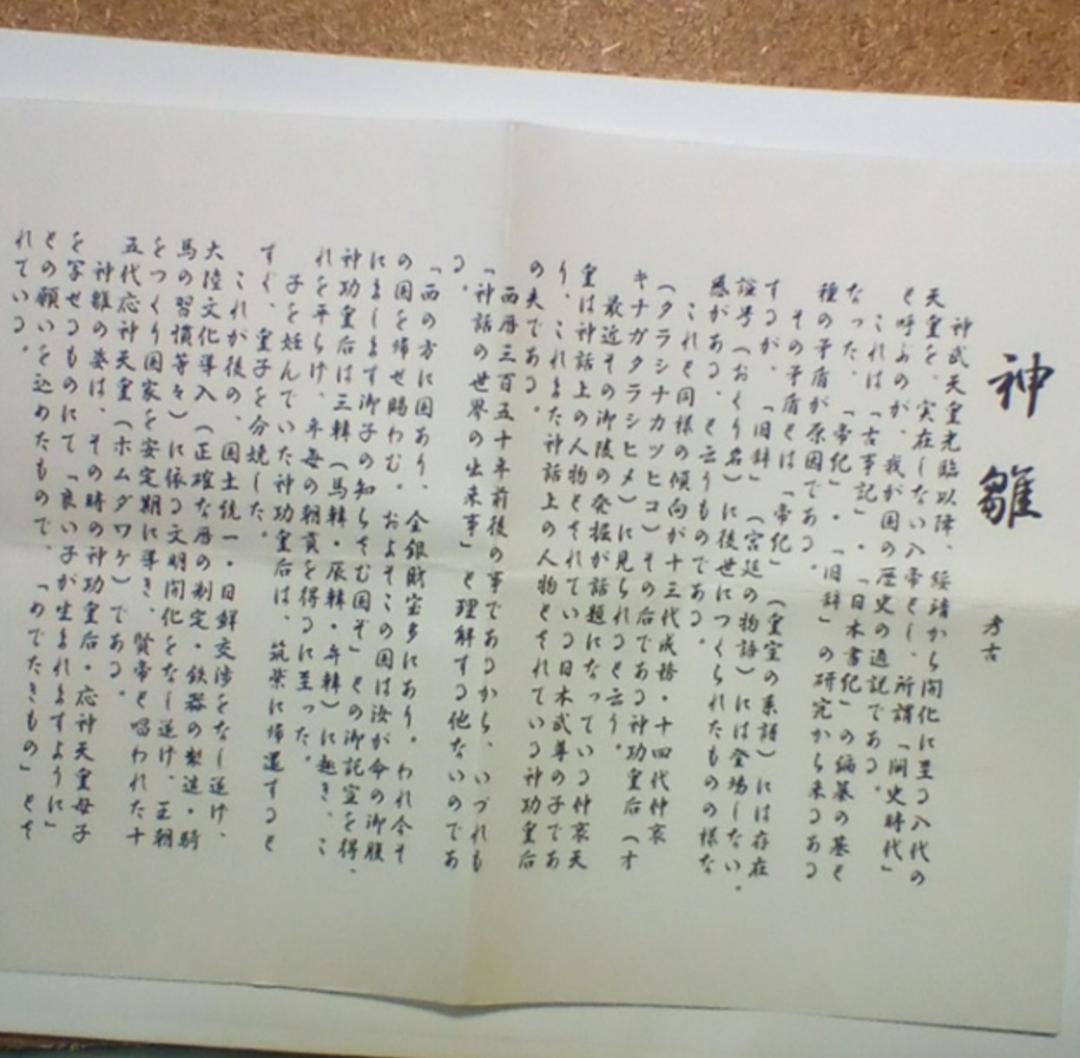 神雛
考古
神武天皇光臨以降、綏靖から開化に至る八代の
天皇を、実在しない八帝とし、所謂「闕史時代」
と呼ぶのが、我が国の歴史の通説である。
これは「古事記」・「日本書紀」の編纂の基と
なった、「帝紀」・「旧辞」の研究から来るある
種の矛盾が原因である。
その矛盾とは「帝紀」(皇室の系譜)には存在
するが、「旧辞」(宮廷の物語)には登場しない。
諡号(おくり名)に後世につくられたものの様な
感がある、と云うものである。
これと同様の傾向が十三代成務・十四代仲哀
(タラシナカツヒコ)その后である神功皇后(オ
キナガタラシヒメ)に見られると云う。
最近その御陵の発掘が話題になっている仲哀天
皇は神話上の人物とされている日本武尊の子であ
り、これまた神話上の人物とされている神功皇后
の夫である。
西暦三百五十年前後の事であるから、いづれも
「神話の世界の出来事」と理解する他ないのであ
る。
「西の方に国あり、金銀財宝多にあり。われ今そ
の国を帰せ賜わむ。およそこの国は汝が命の御腹
にまします御子の知らせむ国ぞ」との御記宣を得、
神功皇后は三韓(馬韓・辰韓・弁韓)に赴き、こ
れを平らけ、年毎の朝貢を得るに至った。
子を妊んでいた神功皇后は、筑紫に帰還すると
すぐ、皇子を分娩した。
これが後の、国土統一・日鮮交渉をなし遂げ、
大陸文化導入(正確な暦の制定・鉄器の製造・騎
馬の習慣等々)に依る文明開化をなし遂げ、王朝
をつくり国家を安定期に導き、賢帝と唱われた十
五代応神天皇(ホムダワケ)である。
神雛の姿は、その時の神功皇后・応神天皇母子
を写せるものにて「良い子が生まれますように」
との願いを込めたもので、「めでたきもの」とさ
れている。